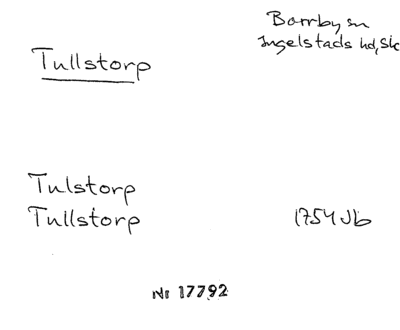 Borrby sn
Ingelstads hd, Sk
Tullstorp
Tulstorp
Tullstorp 1754 Jb
Nr 17792